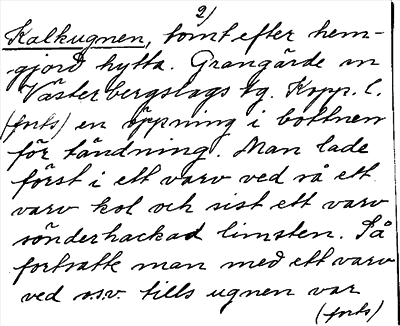 2)
Kalkugnen, tomt efter hem-
gjord hytta. Grangärde sn
Västerbergslags tg. Kopp. l.
(forts) en öppning i bottnen
för tändning. Man lade
först i ett varv ved så ett
varv kol och sist ett varv
sönderhackad limsten. Så
fortsatte man med ett varv
ved o.s.v. tills ugnen var
(forts)